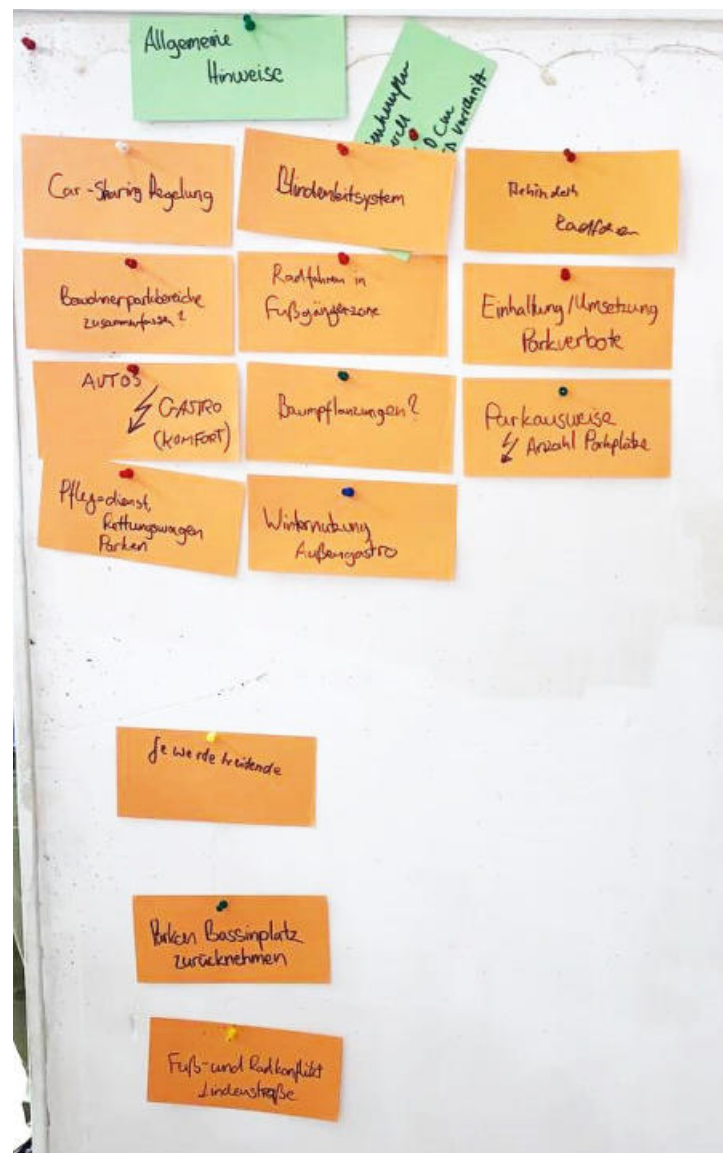 Allgemeine
Hinweise
0 cm
Car-Sharing Regelung
Blindenleitsystem
Behindern
Radfahren
Bewohnerparkbereiche
zusammenfassen?
Radfahren in
Fußgängerzone
Einhaltung/Umsetzung
Parkverbote
AUTOS
GASTRO
(KOMFORT)
Baumpflanzungen?
Parkausweise
Anzahl Parkplätze
Pflegedienst,
Rettungswagen
Parken
Winternutzung
Außengastro
Gewerbetreibende
Parken Bassinplatz
zurücknehmen
Fuß- und Radkonflikt
Lindenstraße